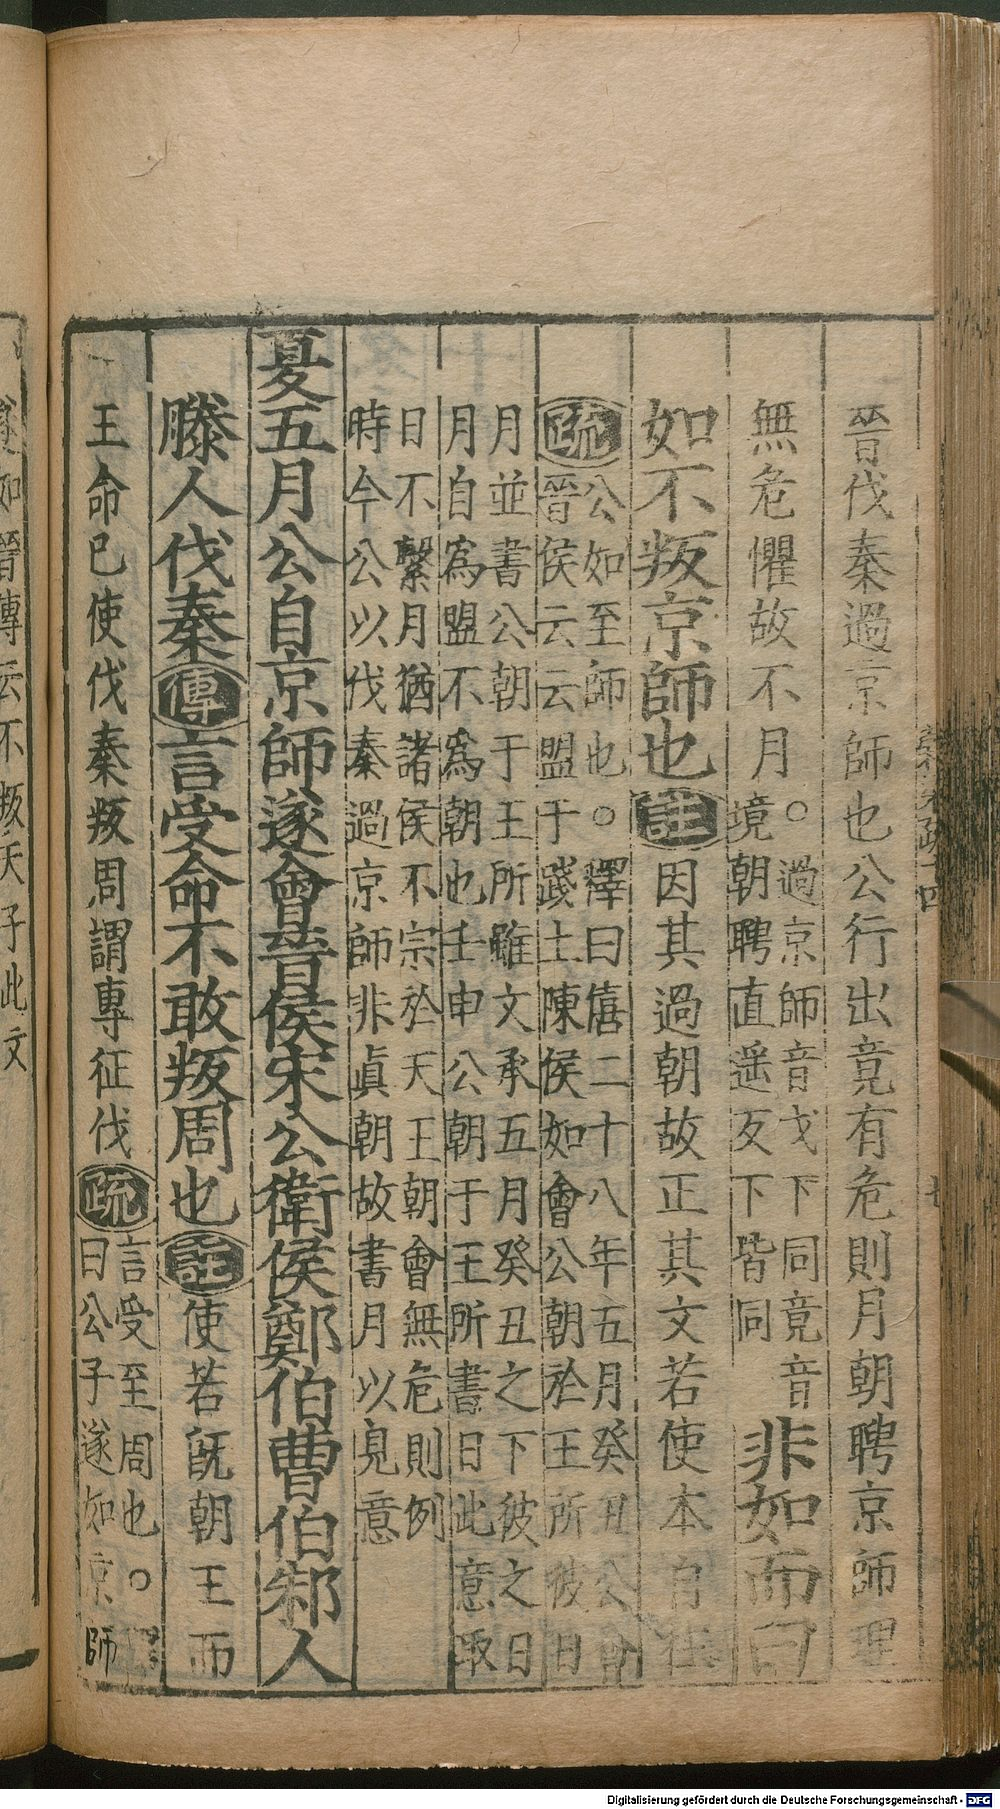 晉伐秦過京師也公行出竟有危則月朝聘京師理
無危懼故不月○過京師音戈下同竟音境朝聘直遥反下皆同非如而曰
如不叛京師也註因其過朝故正其文若使本自往
疏公如至師也○釋曰僖二十八年五月癸丑公會
晉侯云云盟于踐土陳侯如會公朝於王所彼日
月並書公朝于王所雖文承五月癸丑之下彼之日
月自爲盟不爲朝也壬申公朝于王所書日此意取
日不繫月猶諸侯不宗於天王朝會無危則例
時今公以伐秦過京師非眞朝故書月以見意
夏五月公自京師遂會晉侯宋公衛侯鄭伯曹伯邾人
滕人伐秦傳言受命不敢叛周也註使若旣朝王而
王命已使伐秦叛周謂專征伐疏言受至周也○釋
曰公子遂如京師
遂如晉傳云不叛天子此文